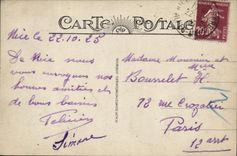 CARTE POSTALE
Nice le 22.10.25
De Nice nous
vous envoyons nos
bonnes amitiés et
de bons baisers
Simone
Madame Monsieur et Mme
Bourrelet H
73 rue Crozatier
Paris
12 arrt